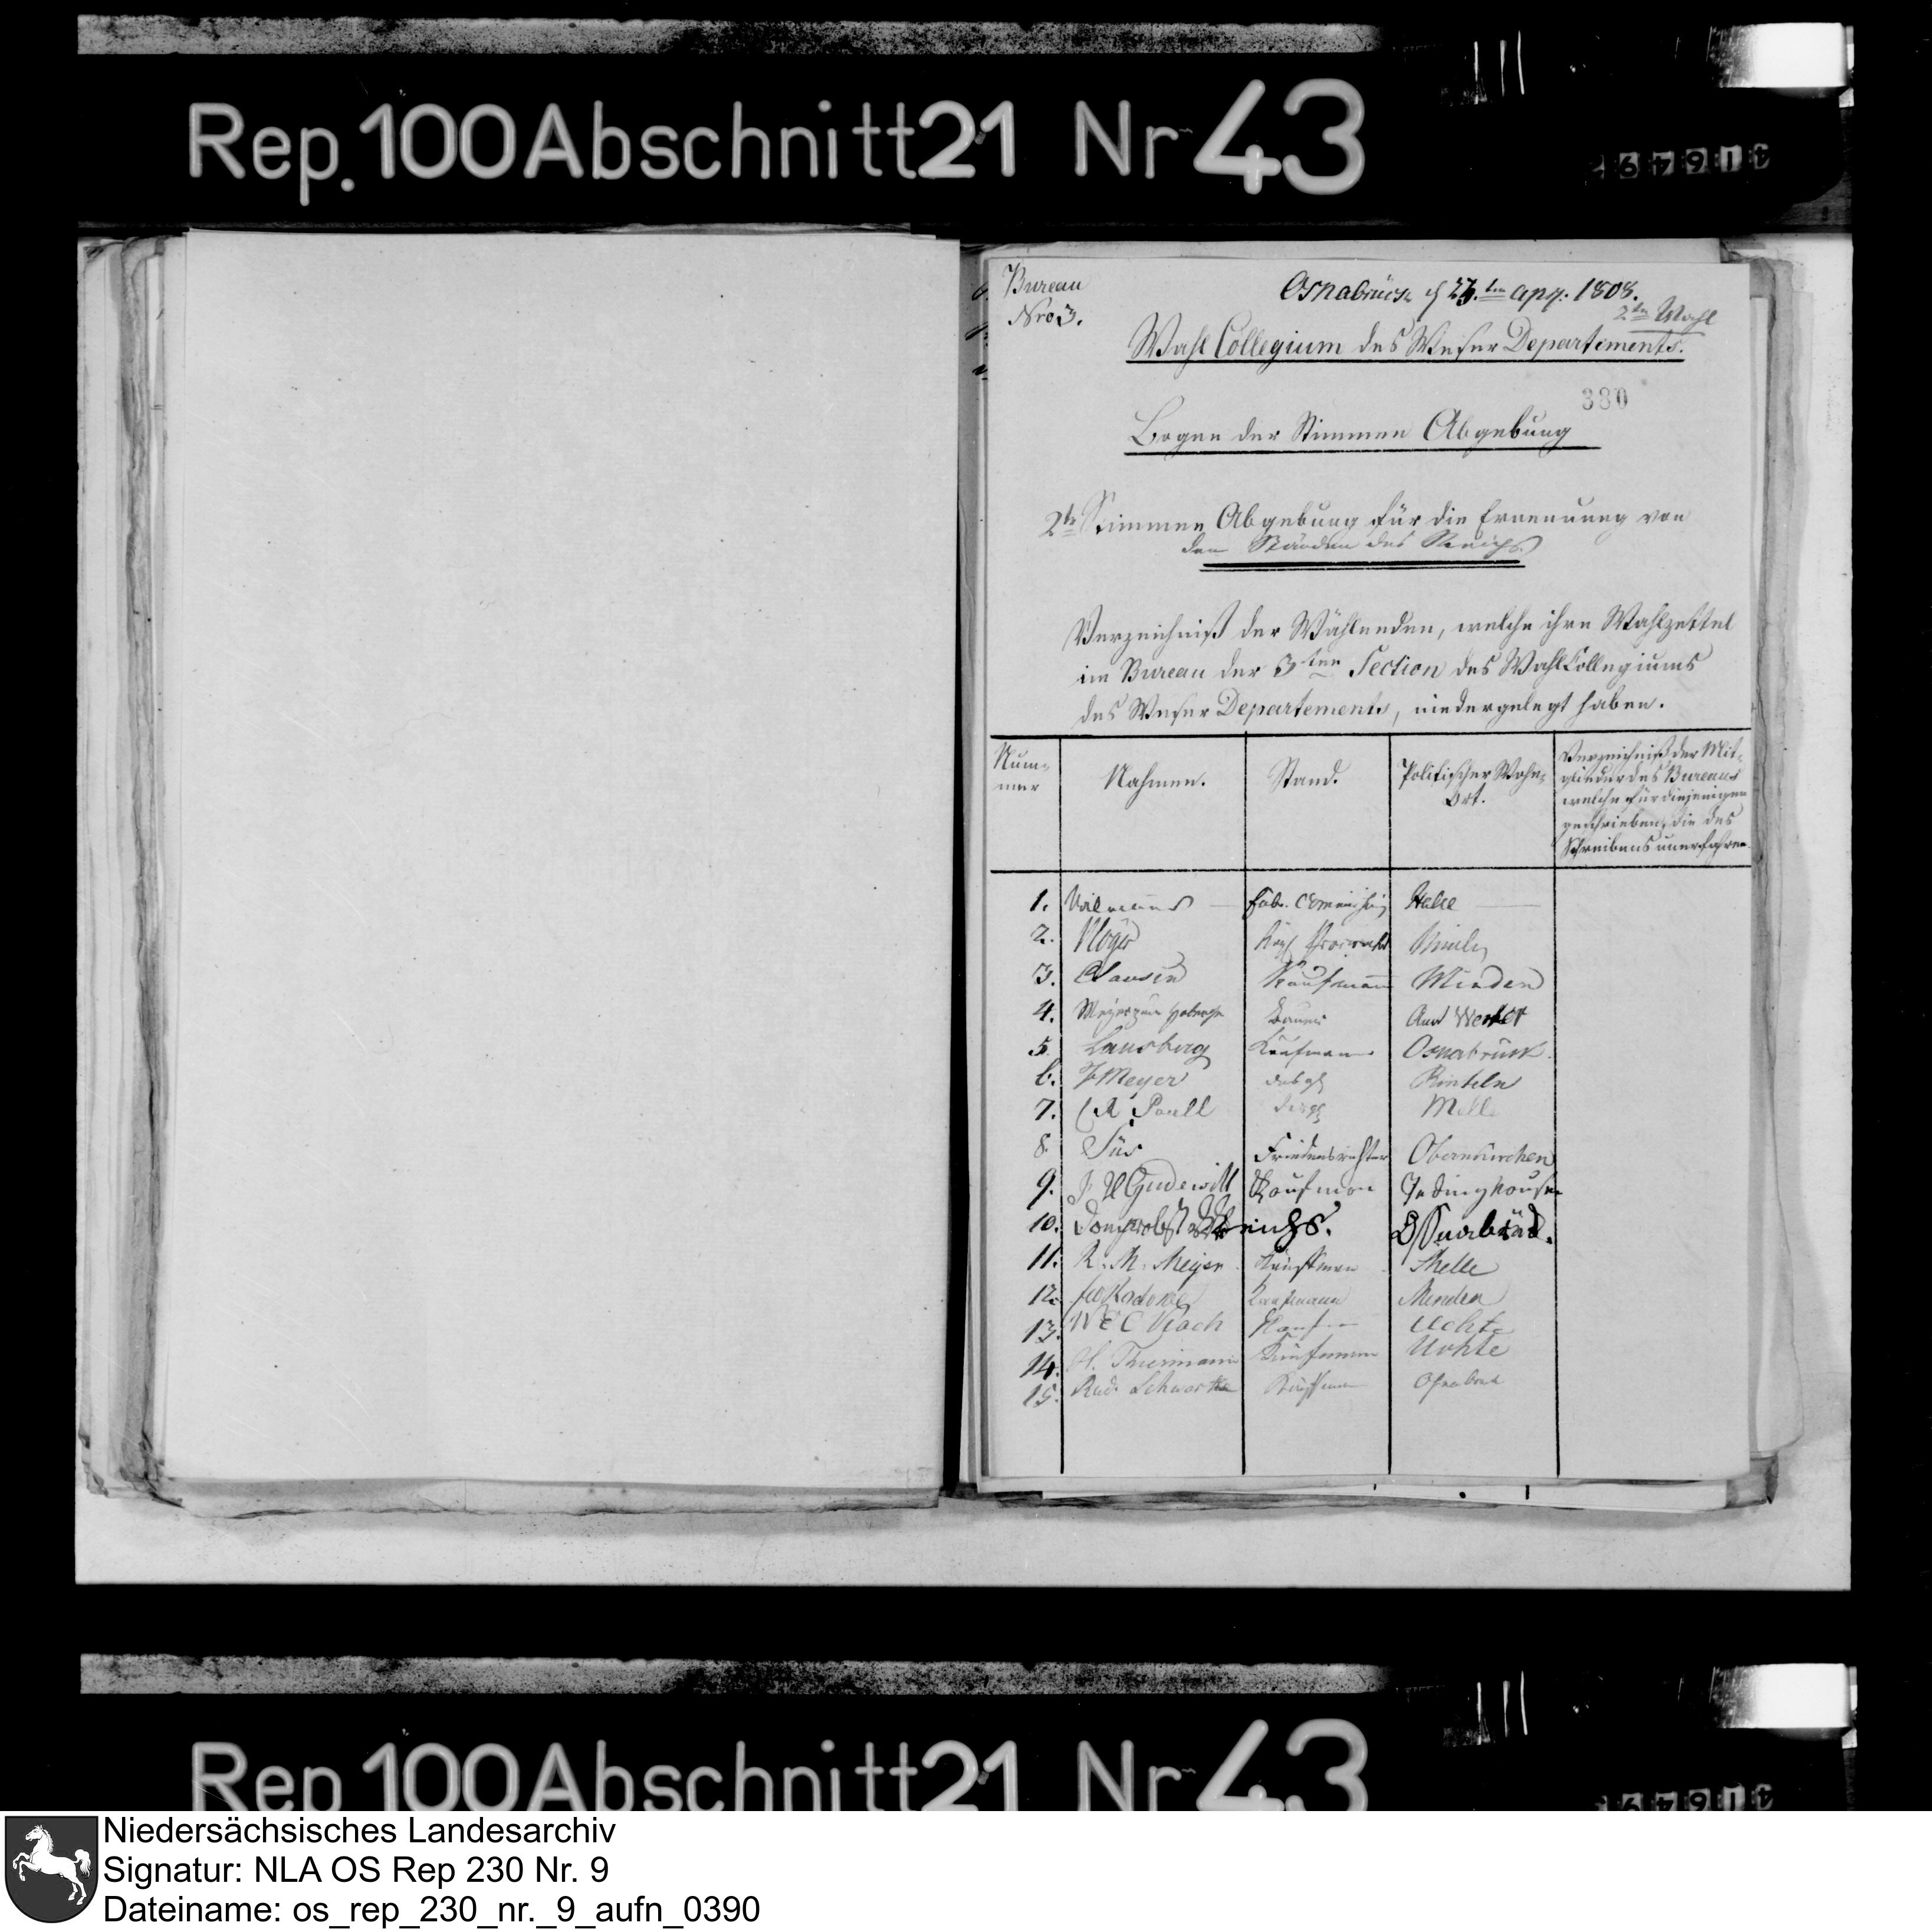 Rep. 100 Abschnitt 21 Nr 43
Bureau
Nro 3.
Osnabrück d 23.ten apr. 1808.
2te Wahl
Wahl Collegium des Weser Departements.
380
Bogen der Stimmen Abgebung
2te Stimmen Abgebung für die Ernennung von
den Ständen des Reichs
Verzeichniß der Wählenden, welche ihre Wahlzettel
im Bureau der 3ten Section des Wahl Collegiums
des Weser Departements, niedergelegt haben.
Num-
mer
Nahmen.
Stand.
Politischer Wohn-
Ort.
Verzeichniß der Mit-
glieder des Bureaus
welche für diejenigen
geschrieben, die des
Schreibens unerfahren
1. Halle
2.
3. Clausen Kaufmann Minden
4. Bauer Amt Werther
5. Lansberg Kaufmann Osnabrück.
6. Meyer desgl Rinteln
7. Pauli desgl Melle
8. Süs Friedensrichter Obernkirchen
9. Gudewill Kaufman
10. Domprobst Osnabrück.
11. Meyer Kauffman Melle
12. Kaufmann Minden
13. Kaufm Uchte
14. H. Thurmann Kaufmann Uchte
15. Rud. Schwartze Kauffman Osnabrück
Rep 100 Abschnitt 21 Nr 43
Niedersächsisches Landesarchiv
Signatur: NLA OS Rep 230 Nr. 9
Dateiname: os_rep_230_nr._9_aufn_0390